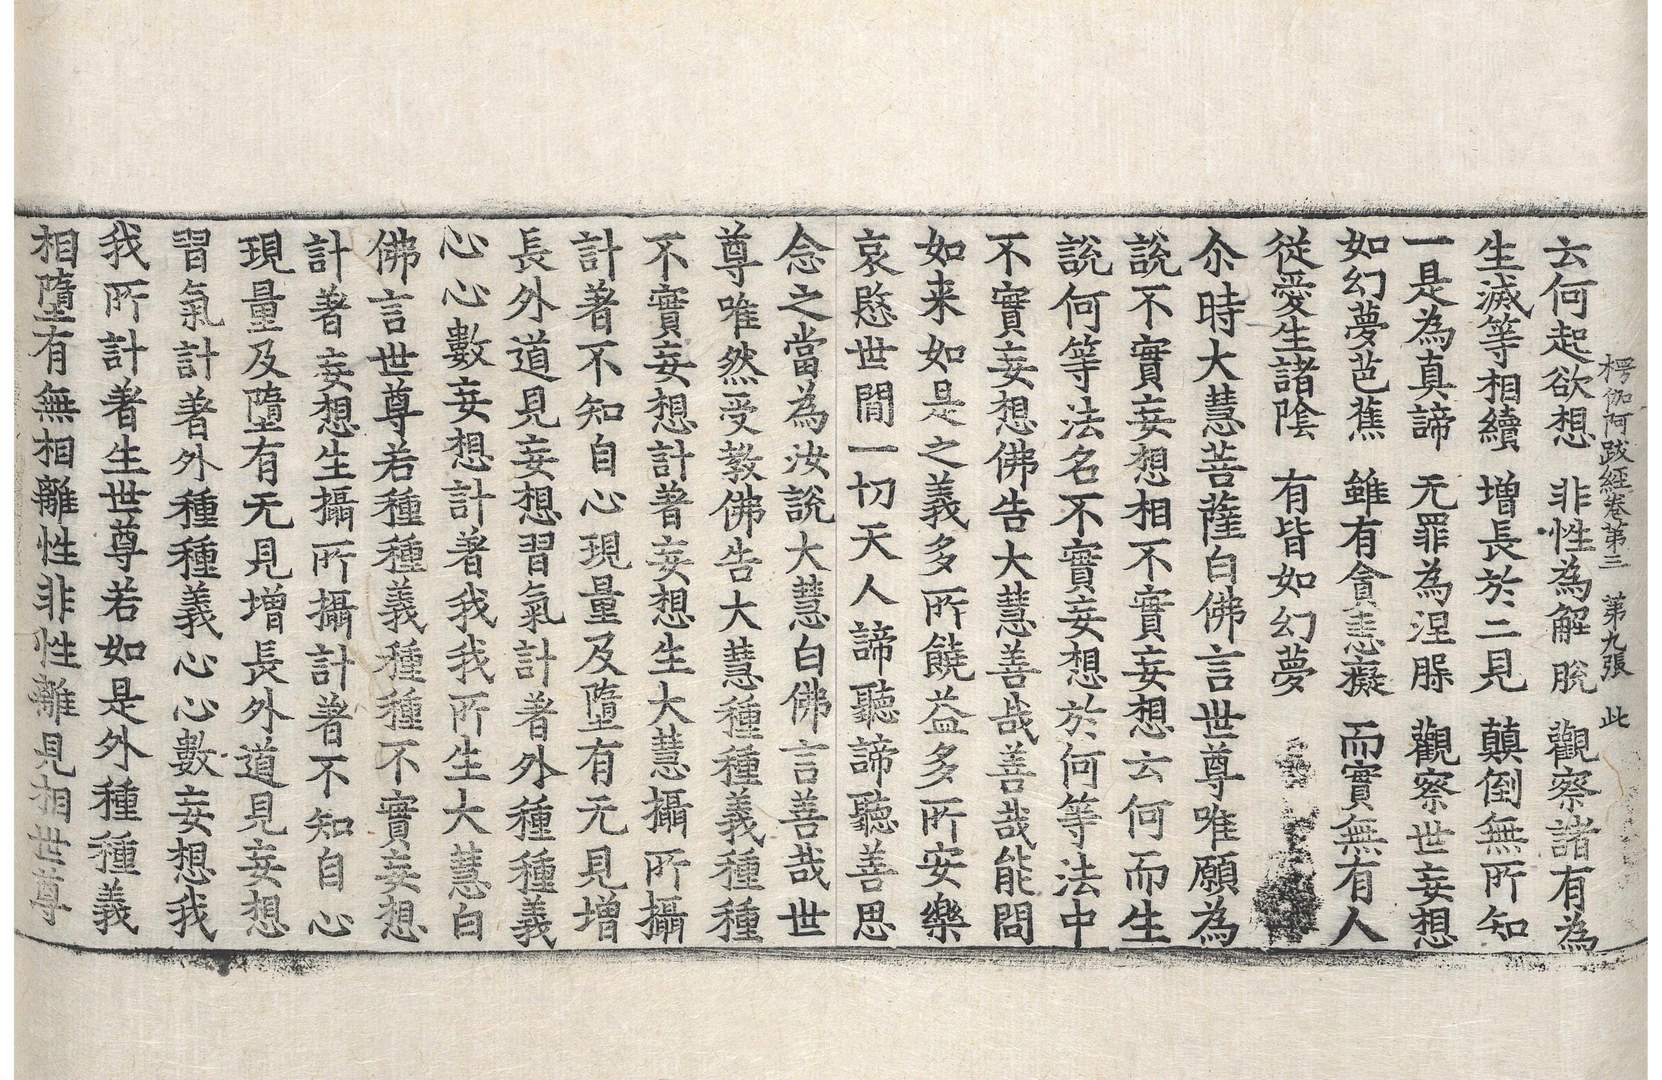 楞伽阿跋經卷第三 第九張 此
云何起欲想 非性為解脫 觀察諸有為
生滅等相續 增長於二見 顛倒無所知
一是為真諦 无罪為涅脲 觀察世妄想
如幻夢芭蕉 雖有貪恚癡 而實無有人
從愛生諸陰 有皆如幻夢
尒時大慧菩薩白佛言世尊唯願為
說不實妄想相不實妄想云何而生
說何等法名不實妄想於何等法中
不實妄想佛告大慧善哉善哉能問
如来如是之義多所饒益多所安樂
哀愍世間一切天人諦聽諦聽善思
念之當為汝說大慧白佛言善哉世
尊唯然受教佛告大慧種種義種種
不實妄想計著妄想生大慧攝所攝
計著不知自心現量及墮有无見增
長外道見妄想習氣計著外種種義
心心數妄想計著我我所生大慧白
佛言世尊若種種義種種不實妄想
計著妄想生攝所攝計著不知自心
現量及墮有无見增長外道見妄想
習氣計著外種種義心心數妄想我
我所計著生世尊若如是外種種義
相墮有無相離性非性離見相世尊